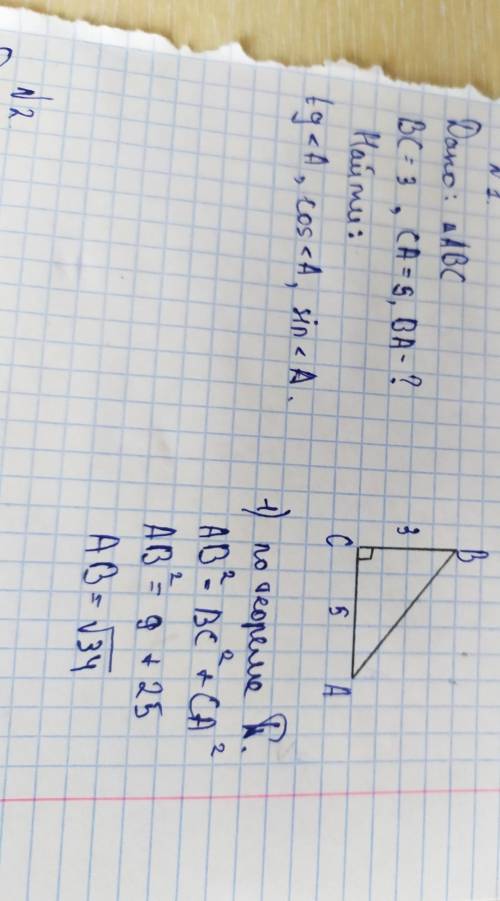 N 1.
Дано: △ABC
BC = 3, CA = 5, BA - ?
Найти:
tg<A, cos<A, sin<A.
B
3
C
5
A
1) по теореме П.
AB² = BC² + CA²
AB² = 9 + 25
AB = √34
N 2.